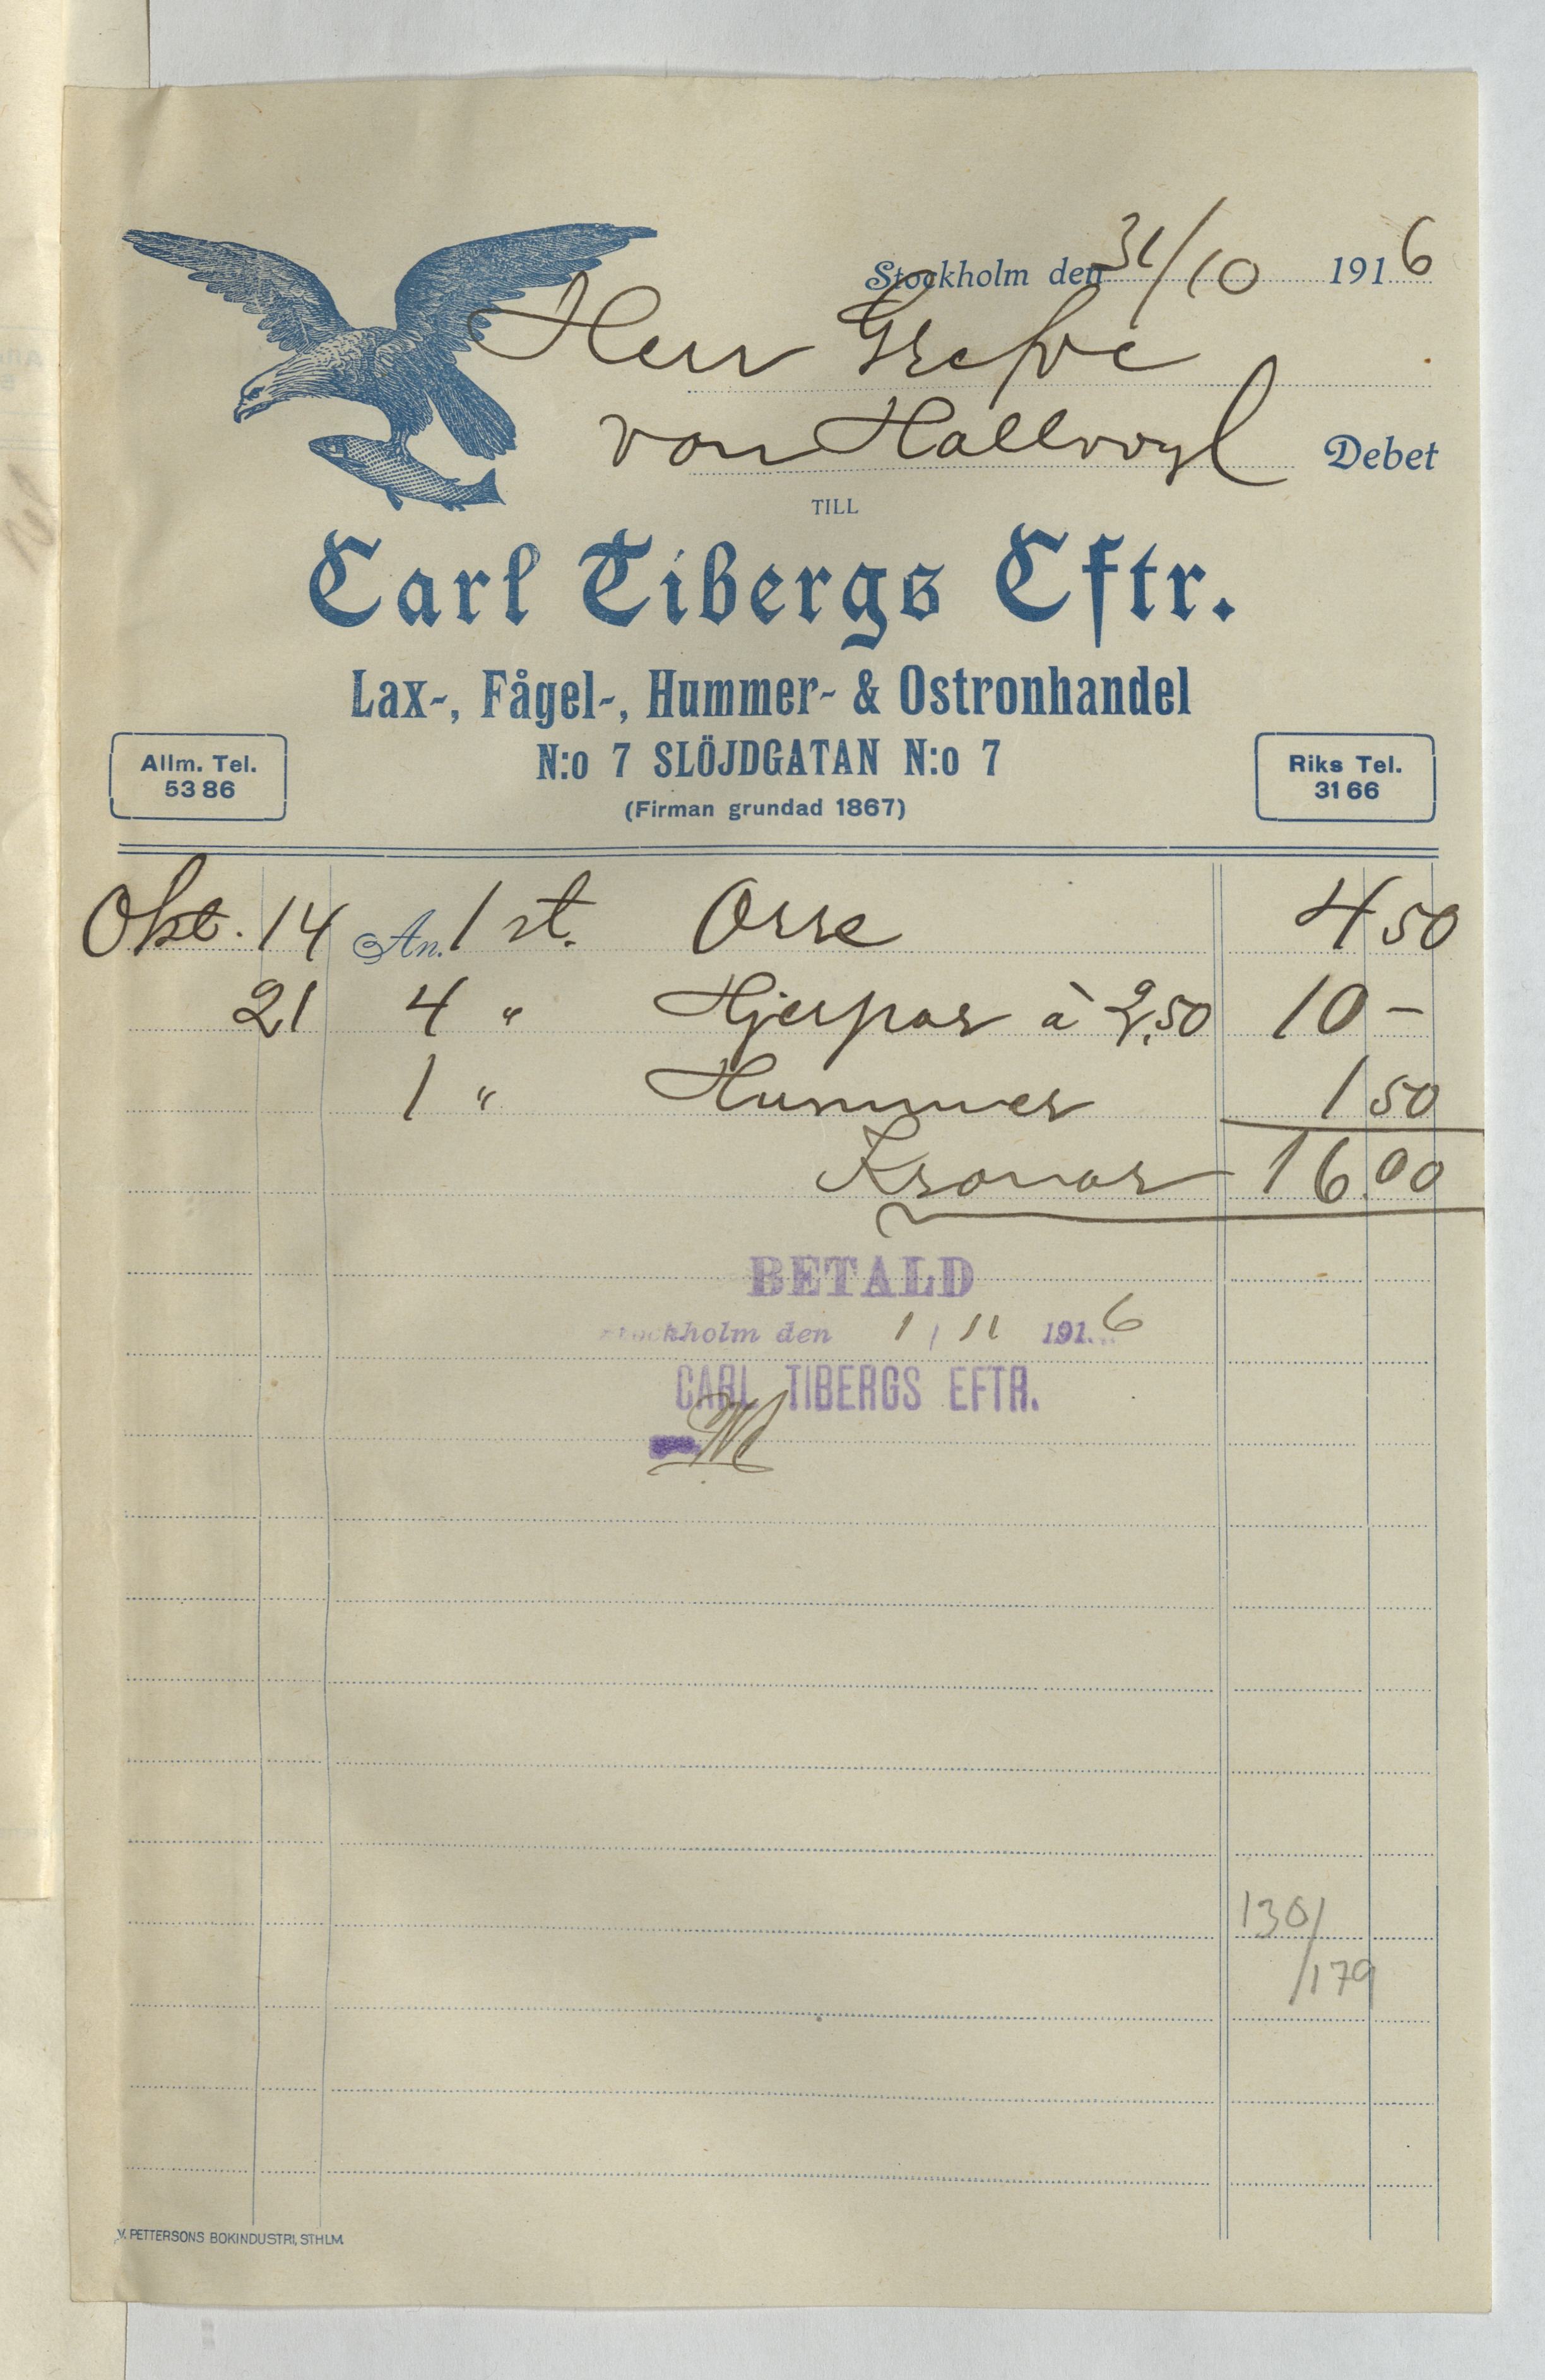 Stockholm den 31/10 1916
Herr Grefve
von Hallwyl Debet
TILL
Carl Tibergs Eftr.
Lax-, Fågel-, Hummer- & Ostronhandel
N:o 7 SLÖJDGATAN N:o 7
Allm. Tel.
53 86
(Firman grundad 1867)
Riks Tel.
31 66
Okt. 14 An. 1 st. Orre 4 50
21 4 " Hjerpar à 2,50 10 -
1 " Hummer 1 50
Kronor 16.00
BETALD
Stockholm den 1/11 1916
CARL TIBERGS EFTR.
130/
/179
V. PETTERSONS BOKINDUSTRI, STHLM.